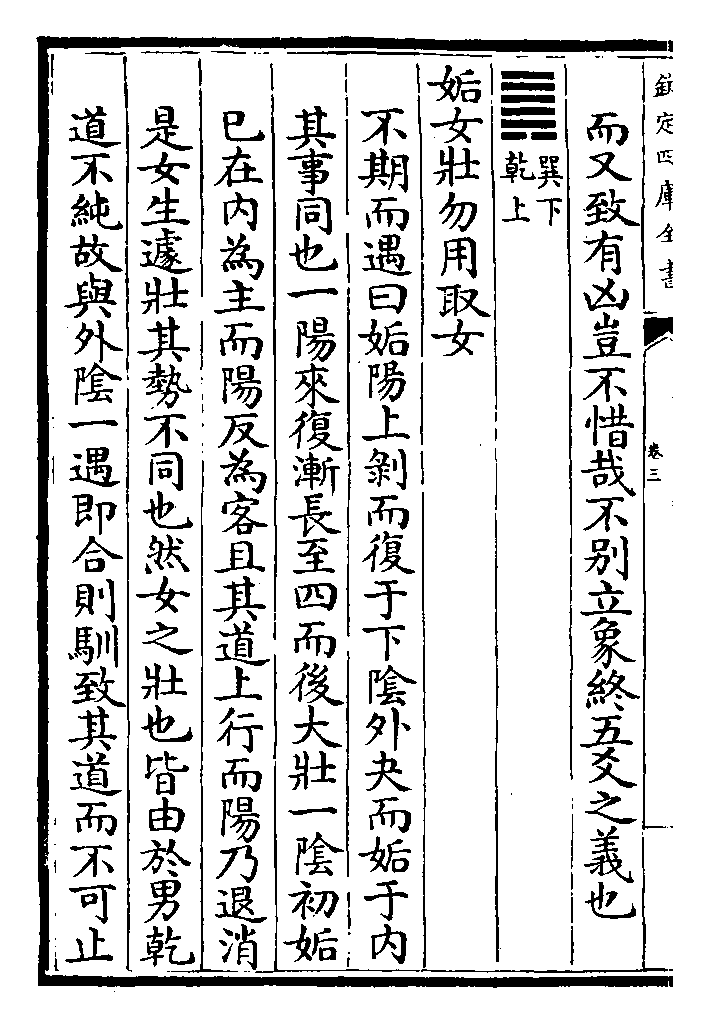 欽定四庫全書
卷三
而又致有凶豈不惜哉不别立象終五爻之義也
䷫巽下乾上
姤女壯勿用取女
不期而遇曰姤陽上剝而復于下陰外夬而姤于内
其事同也一陽來復漸長至四而後大壯一陰初姤
已在内為主而陽反為客且其道上行而陽乃退消
是女生遽壯其勢不同也然女之壯也皆由於男乾
道不純故與外陰一遇即合則馴致其道而不可止